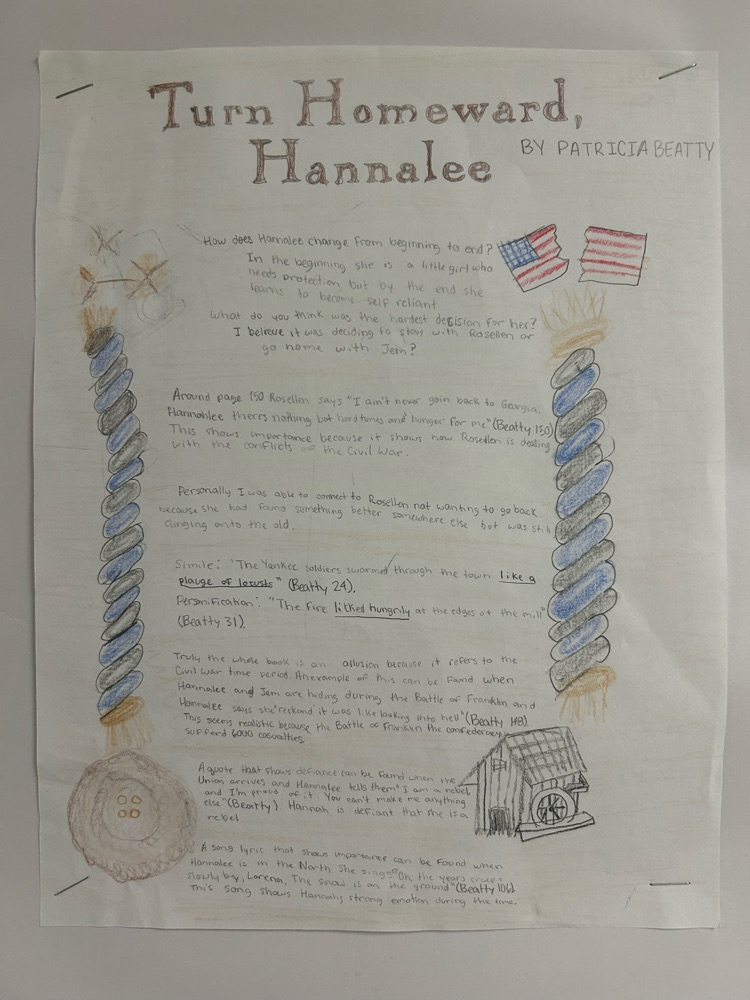 Turn Homeward,
Hannalee
BY PATRICIA BEATTY
How does Hannalee change from beginning to end?
In the beginning she is a little girl who
needs protection but by the end she
learns to become self reliant
What do you think was the hardest decision for her?
I believe it was deciding to stay with Rosellen or
go home with Jem?
Around page 150 Rosellen says "I ain't never goin back to Georgia,
Hannahlee theres nothing but hard times and hunger for me" (Beatty 150)
This shows importance because it shows how Rosellen is dealing
with the conflicts of the Civil War.
Personally I was able to connect to Rosellen not wanting to go back
because she had found something better somewhere else but was still
clinging onto the old.
Simile: "The Yankee soldiers swarmed through the town like a
plauge of losusts" (Beatty 24).
Personification: "The fire licked hungrily at the edges of the mill"
(Beatty 31).
Truly the whole book is an allusion because it refers to the
Civil War time period. An example of this can be found when
Hannalee and Jem are hiding during the Battle of Franklin and
Hannalee says she "reckond it was like looking into hell" (Beatty 148).
This seems realistic because the Battle of Franklin the confederacy
sufferd 6000 casualties.
A quote that shows defiance can be found when the
Union arrives and Hannalee tells them "I am a rebel,
and I'm proud of it. You can't make me anything
else" (Beatty). Hannah is defiant that she is a
rebel
A song lyric that shows importance can be found when
Hannalee is in the North she sings "Oh, the years creep
slowly by, Lorena, The snow is on the ground" (Beatty 106).
This song shows Hannahs strong emotion during the time.